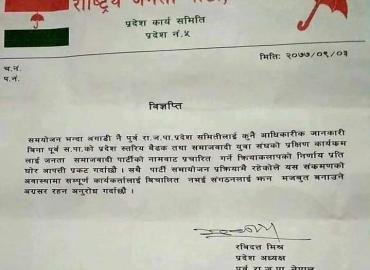 राष्ट्रिय जनता
प्रदेश कार्य समिति
प्रदेश नं.५
मितिः २०७७/०९/०३
च.नं.
प.नं.
विज्ञप्ति
समयोजन भन्दा अगाडी नै पुर्व रा.ज.पा.प्रदेश समितीलाई कुनै आधिकारीक जानकारी
बिना पूर्व स.पा.को प्रदेश स्तरिय बैठक तथा समाजवादी युवा संघको प्रक्षिण कार्यकम
लाई जनता समाजवादी पार्टीको नामवाट प्रचारित गर्ने क्रियाकलापको निर्णय प्रति
घोर आपत्ती प्रकट गर्दाछौ । साथै पार्टी समायोजन प्रकियामै रहेकोले यस संकमणको
अवास्थामा सम्पूर्ण कार्यकर्तालाई बिचालित नभई संगठनलाई झन मजबुत बनाउने
अग्रसर रहन अनुरोध गर्दाछौ ।
रविदत्त मिश्र
प्रदेश अध्यक्ष
पूर्व रा.ज.पा नेपाल